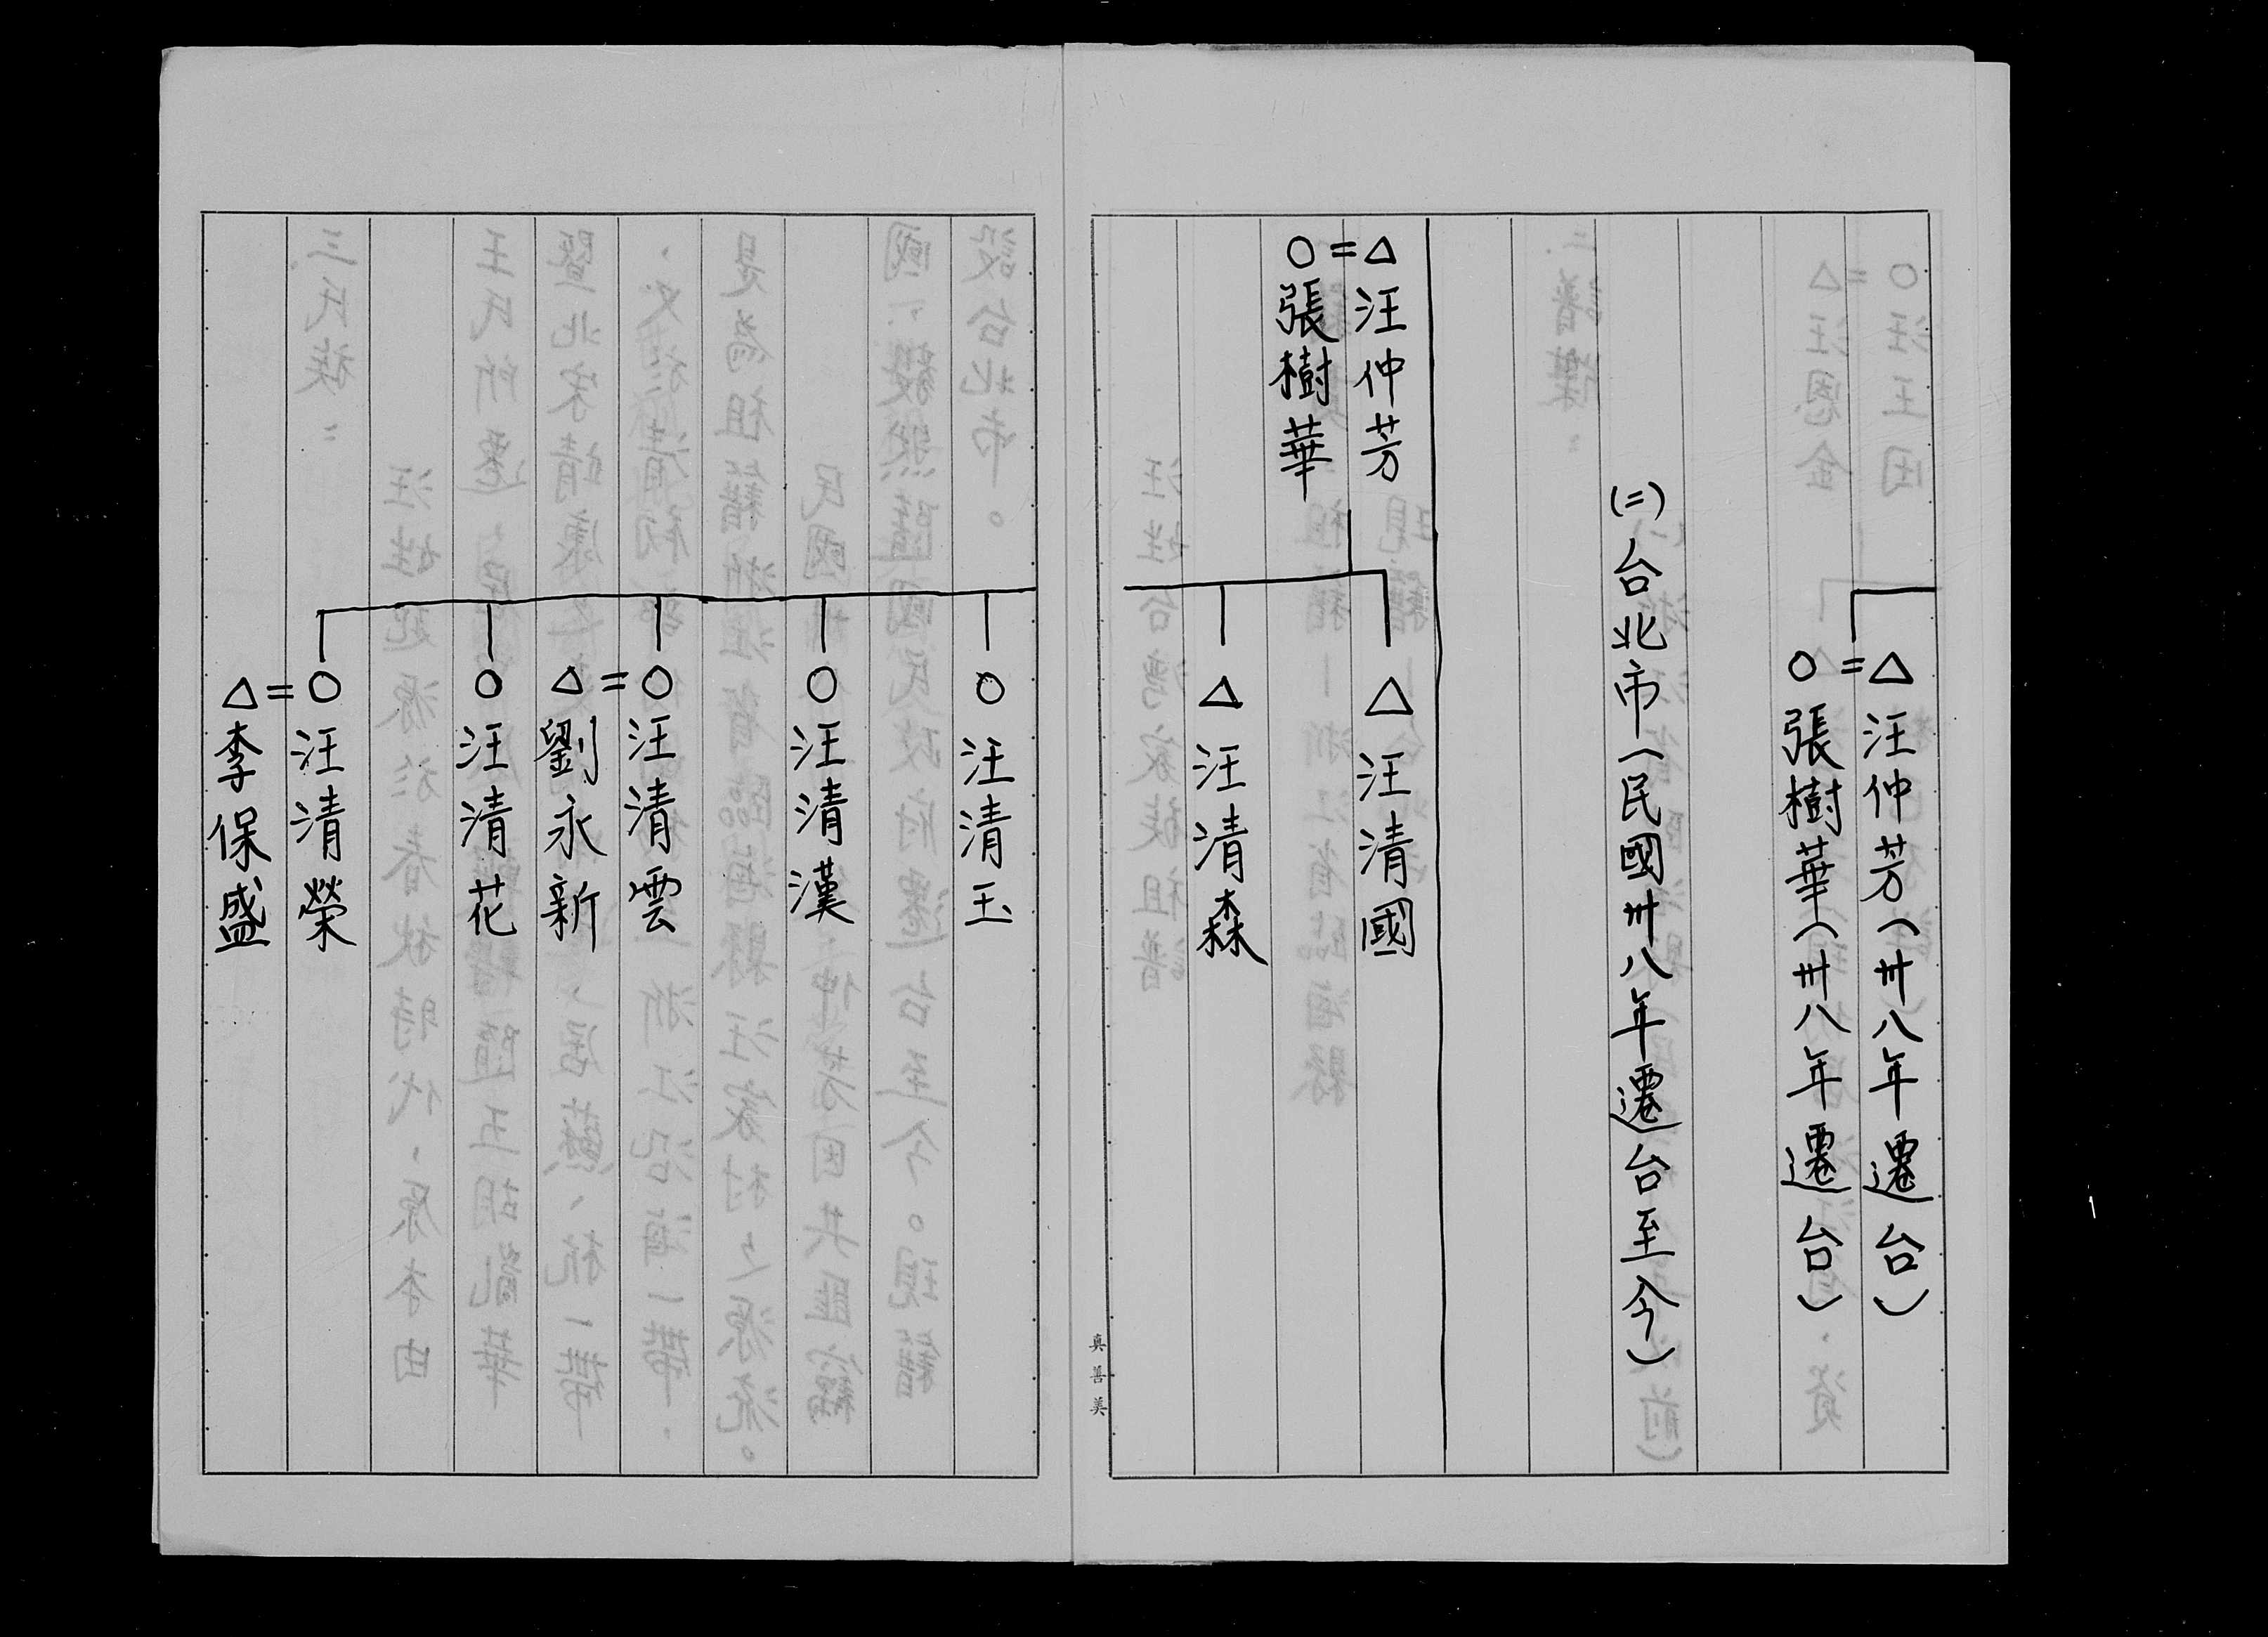 △汪仲芳(卅八年遷台)
=
○張樹華(卅八年遷台)
(二)台北市(民國卅八年遷台至今)
△汪仲芳
=
○張樹華
△汪清國
△汪清森
真善美
○汪清玉
○汪清漢
○汪清雲
=
△劉永新
○汪清花
○汪清榮
=
△李保盛